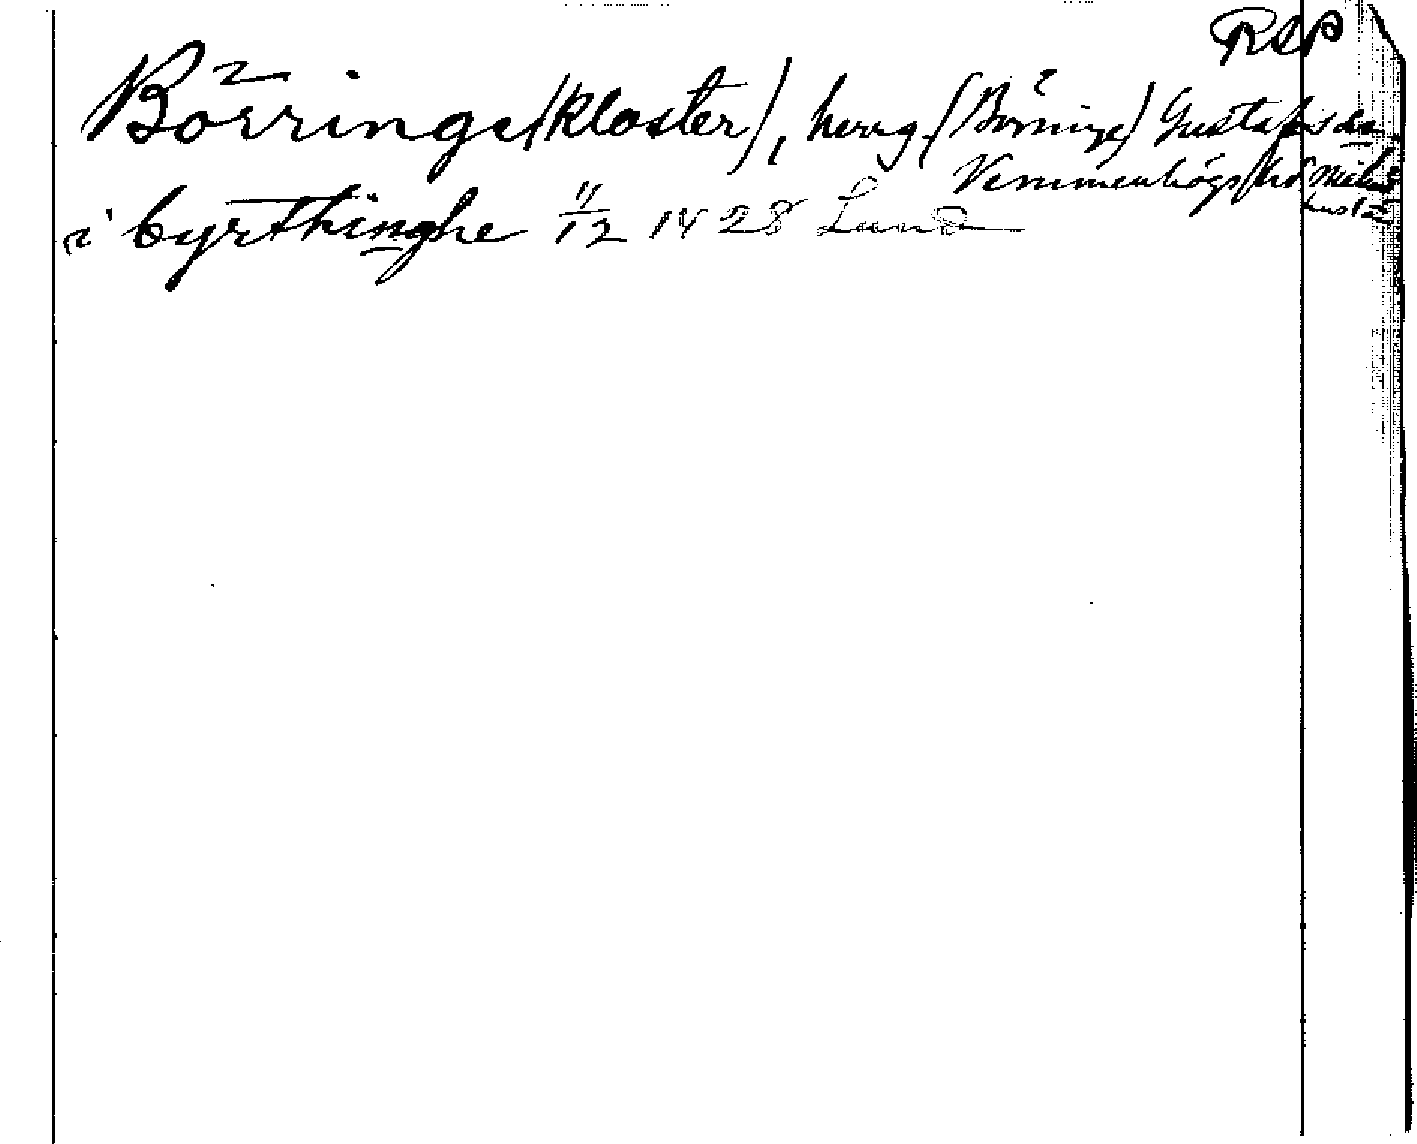 RSP
Börringe(kloster), herrg. (Börringe) Gustafs
Vemmenhögs hd Malm
i byrthinghe 11/12 1428 Lund